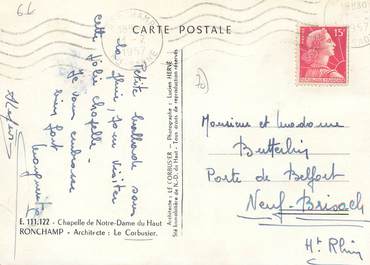 61
CARTE POSTALE
1957
15F
70
Petite ballade sous
la pluie pour visiter
cette jolie chapelle.
Je vous embrasse
bien fort
Marguerite
Architecte : LE CORBUSIER. - Photographe : Lucien HERVÉ
Sté Immobilière de N.-D. du Haut - Tous droits de reproduction réservés
Monsieur et madame
Butterlin
Porte de Belfort
Neuf-Brisach
Ht Rhin
E. 111.122 - Chapelle de Notre-Dame du Haut
RONCHAMP - Architecte : Le Corbusier.